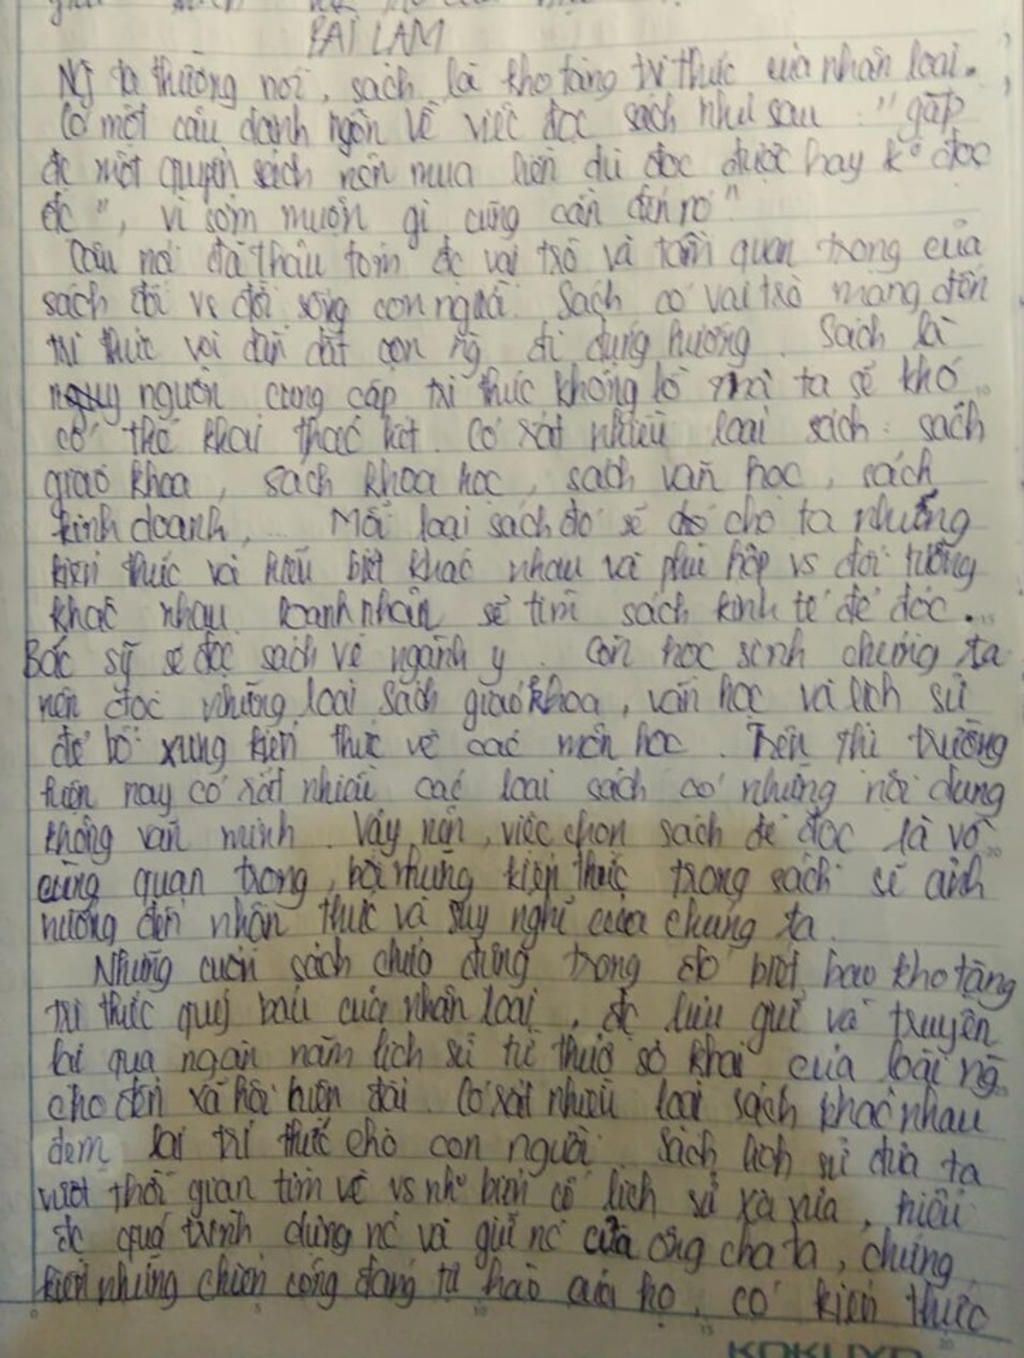 BÀI LÀM
Ng ta thường nói, sách là kho tàng tri thức của nhân loại.
Có một câu danh ngôn về việc đọc sách như sau : "gặp
đc một quyển sách nên mua liền dù đọc được hay k° đọc
đc", vì sớm muộn gì cũng cần đến nó"
Câu nói đã thâu tóm đc vai trò và tầm quan trọng của
sách đối vs đời sống con người. Sách có vai trò mang đến
tri thức và dẫn dắt con ng đi đúng hướng. Sách là
nguồn cung cấp tri thức khổng lồ mà ta sẽ khó
có thể khai thác hết. Có rất nhiều loại sách : sách
giáo khoa, sách khoa học, sách văn học, sách
kinh doanh, ... Mỗi loại sách đó sẽ cho ta những
kiến thức và hiểu biết khác nhau và phù hợp vs đối tượng
khác nhau. Doanh nhân sẽ tìm sách kinh tế để đọc...
Bác sỹ sẽ đọc sách về ngành y. Còn học sinh chúng ta
nên đọc những loại sách giáo khoa, văn học và lịch sử
để bổ xung kiến thức về các môn học. Trên thị trường
hiện nay có rất nhiều các loại sách có những nội dung
không văn minh. Vậy nên, việc chọn sách để đọc là vô
cùng quan trọng, bởi những kiến thức trong sách sẽ ảnh
hưởng đến nhận thức và suy nghĩ của chúng ta.
Những cuốn sách chứa đựng trong đó biết bao kho tàng
tri thức quý báu của nhân loại, đc lưu giữ và truyền
lại qua ngàn năm lịch sử từ thuở sơ khai của loài ng
cho đến xã hội hiện đại. Có rất nhiều loại sách khác nhau
đem lại tri thức cho con người. Sách lịch sử đưa ta
vượt thời gian tìm về vs nh° biến cố lịch sử xa xưa, hiểu
đc quá trình dựng nc và giữ nc của ông cha ta, chứng
kiến những chiến công đáng tự hào của họ, có kiến thức
KOKUYO